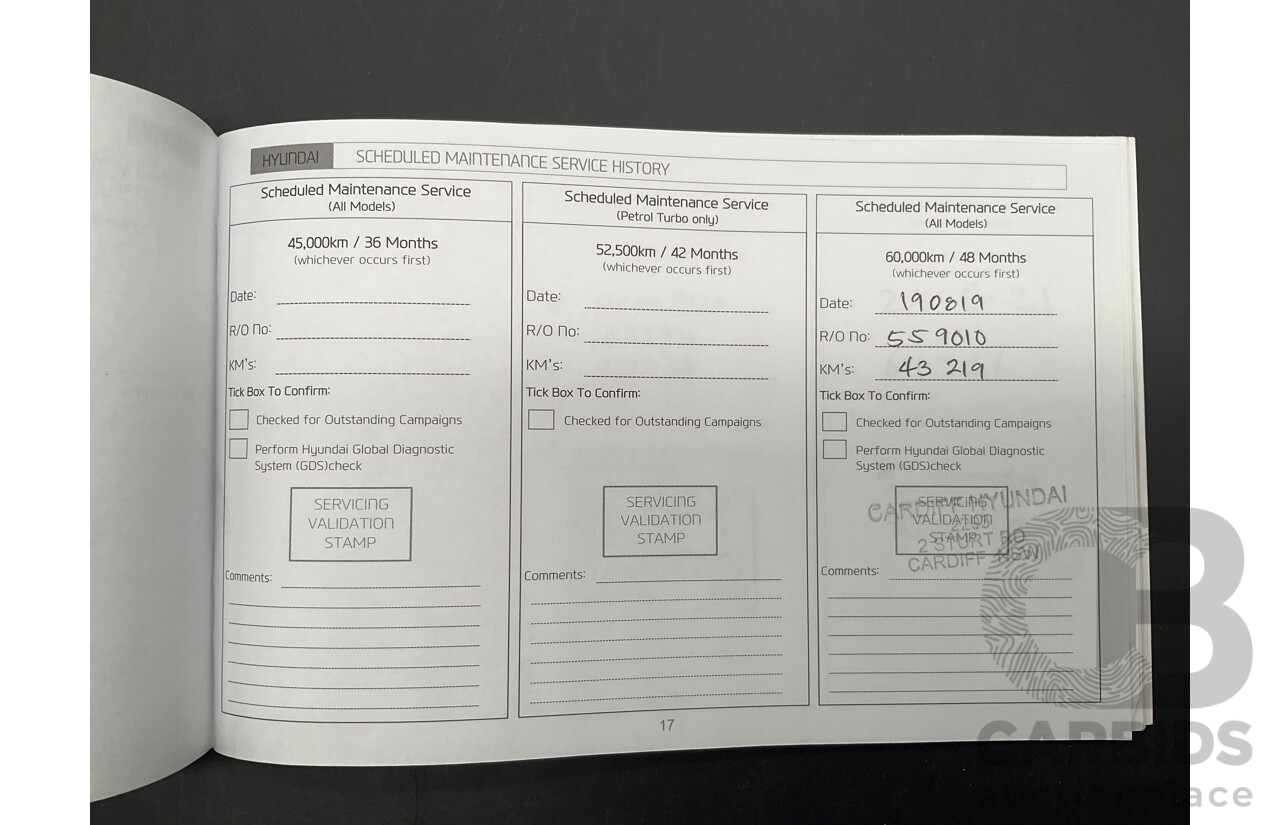 HYUNDAI SCHEDULED MAINTENANCE SERVICE HISTORY
Scheduled Maintenance Service
(All Models)
45,000km / 36 Months
(whichever occurs first)
Date:
R/O No:
KM's:
Tick Box To Confirm:
Checked for Outstanding Campaigns
Perform Hyundai Global Diagnostic
System (GDS)check
SERVICING
VALIDATION
STAMP
Comments:
Scheduled Maintenance Service
(Petrol Turbo only)
52,500km / 42 Months
(whichever occurs first)
Date:
R/O No:
KM's:
Tick Box To Confirm:
Checked for Outstanding Campaigns
SERVICING
VALIDATION
STAMP
Comments:
Scheduled Maintenance Service
(All Models)
60,000km / 48 Months
(whichever occurs first)
Date: 190819
R/O No: 559010
KM's: 43 219
Tick Box To Confirm:
Checked for Outstanding Campaigns
Perform Hyundai Global Diagnostic
System (GDS)check
SERVICING
VALIDATION
STAMP
CARDIFF HYUNDAI
2 STURT RD
CARDIFF NSW
Comments:
17
CARBIDS